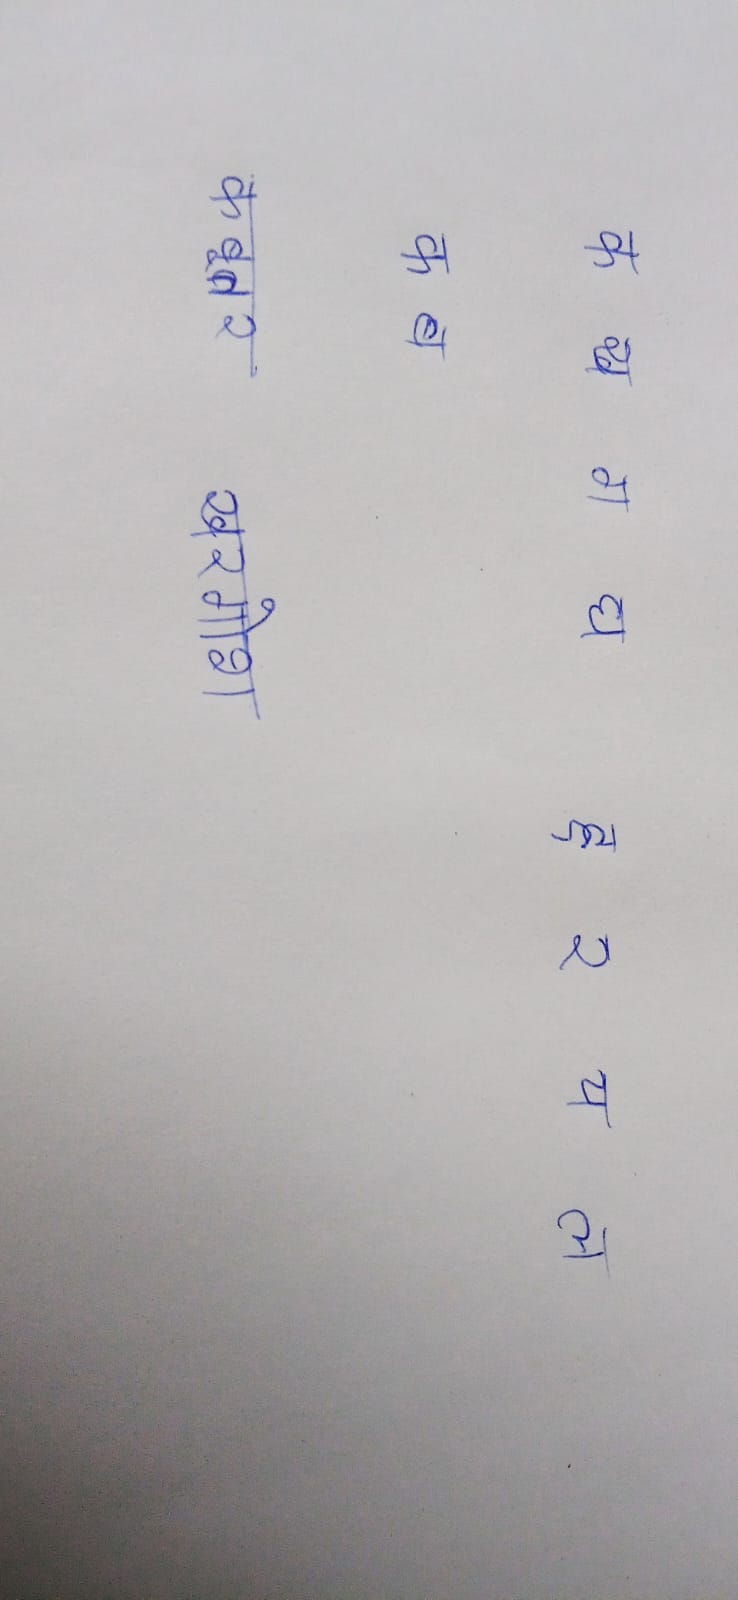 क ख ग घ ह र य ल
क ब
कबूतर खरगोश